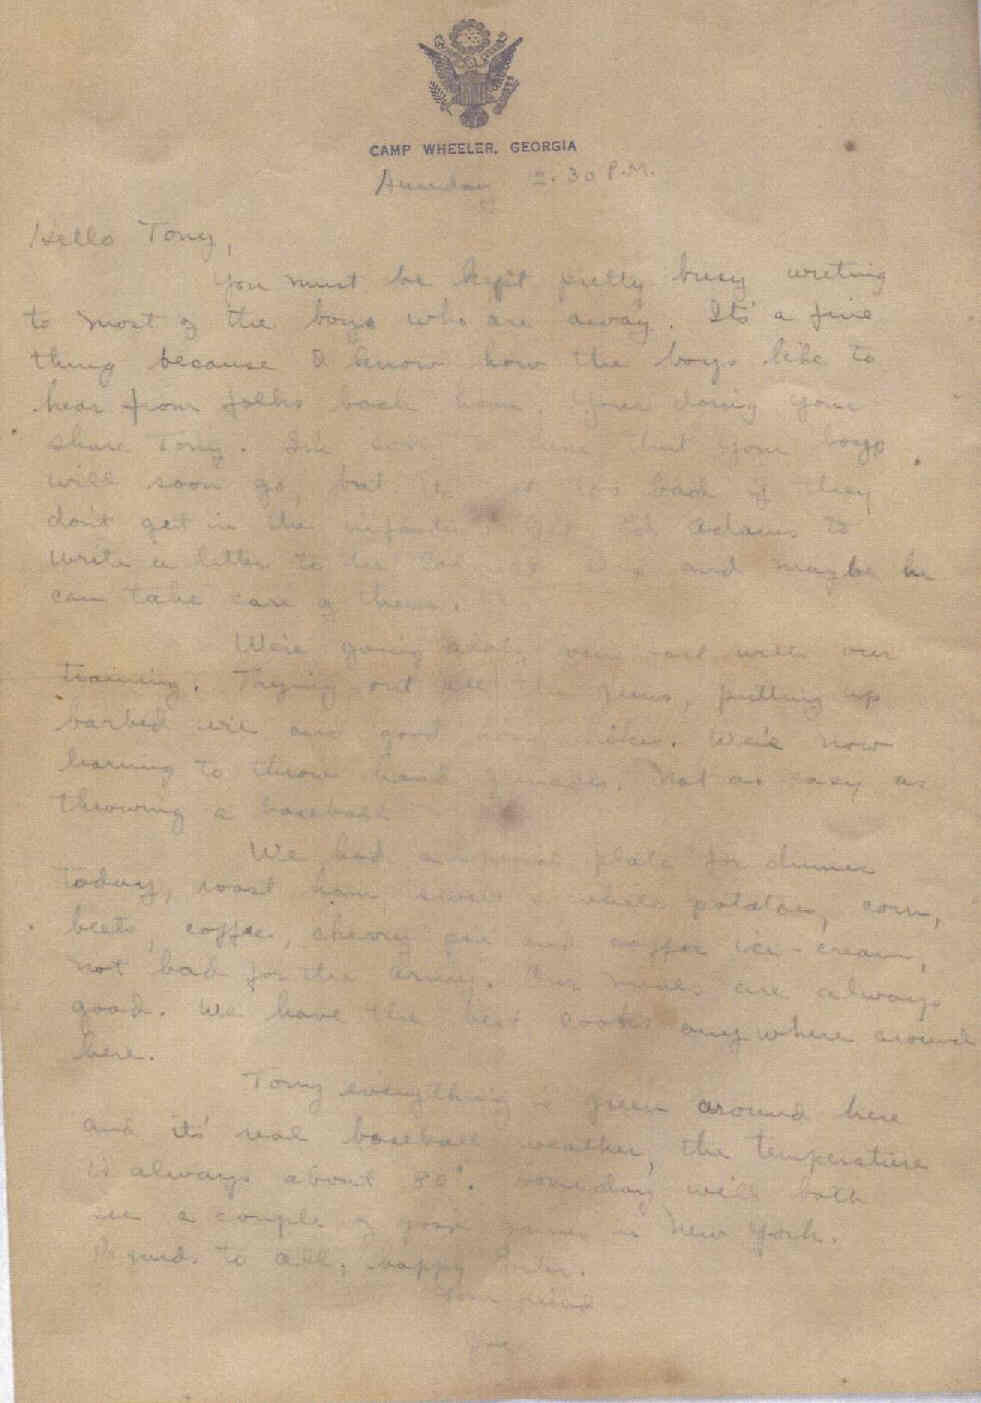 CAMP WHEELER, GEORGIA
.30 P.M.
Hello Tony,
You must be kept pretty busy writing
to most of the boys who are away. Its a fine
thing because I know how the boys like to
hear from folks back home. Your doing your
share Tony. that your boys
will soon go, but too bad if they
don't get in the Adams to
write a letter to and maybe he
can take care of them.
We're going with our
training. Trying out all the guns, putting up
barbed wire and good hikes. We're now
learning to throw hand grenades. Not as easy as
throwing a baseball
We had a special plate for dinner
today, roast ham, whole potatoes, corn,
beets, coffee, cherry pie and coffee ice-cream,
not bad for the army. Our meals are always
good. We have the best cooks anywhere around
here.
Tony everything is green around here
and its real baseball weather, the temperature
is always about 80°. Someday we'll both
see a couple of good games in New York.
Regards to all, happy
Your friend